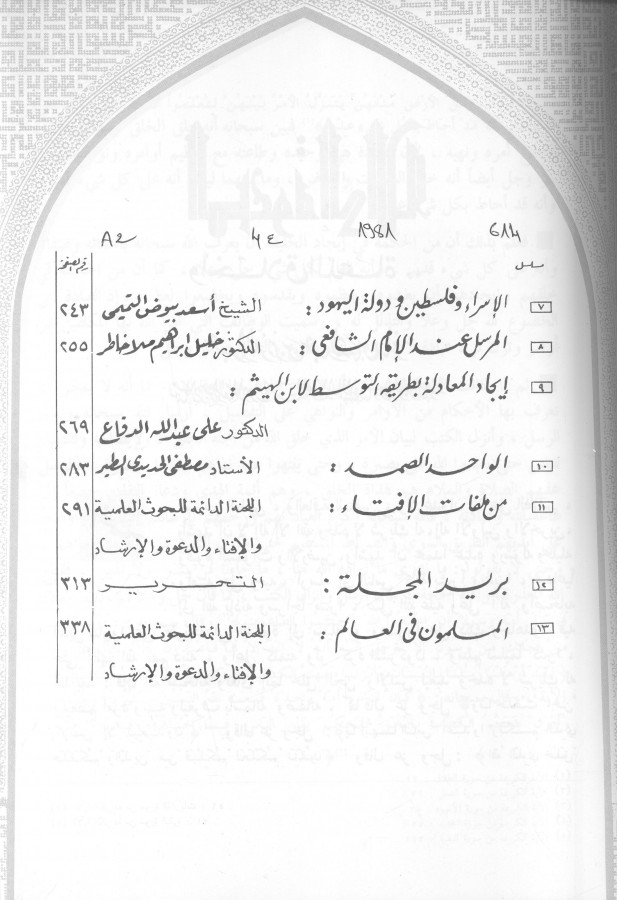 614 1981 ٤٤ A2
مسلسل رقم الصفحة
٧ الإسراء وفلسطين ودولة اليهود : الشيخ أسعد بيوض التميمي ٢٤٣
٨ المرسل عند الإمام الشافعي : الدكتور خليل ابراهيم ملا خاطر ٢٥٥
٩ إيجاد المعادلة بطريقة التوسط لابن الهيثم :
الدكتور على عبد الله الدفاع ٢٦٩
١٠ الواحد الصمد : الأستاذ مصطفى الحديدي الطير ٢٨٣
١١ من ملفات الإفتاء : اللجنة الدائمة للبحوث العلمية ٢٩١
والإفتاء والدعوة والإرشاد
١٢ بريد المجلة : التحرير ٣١٣
١٣ المسلمون في العالم : اللجنة الدائمة للبحوث العلمية ٣٣٨
والإفتاء والدعوة والإرشاد